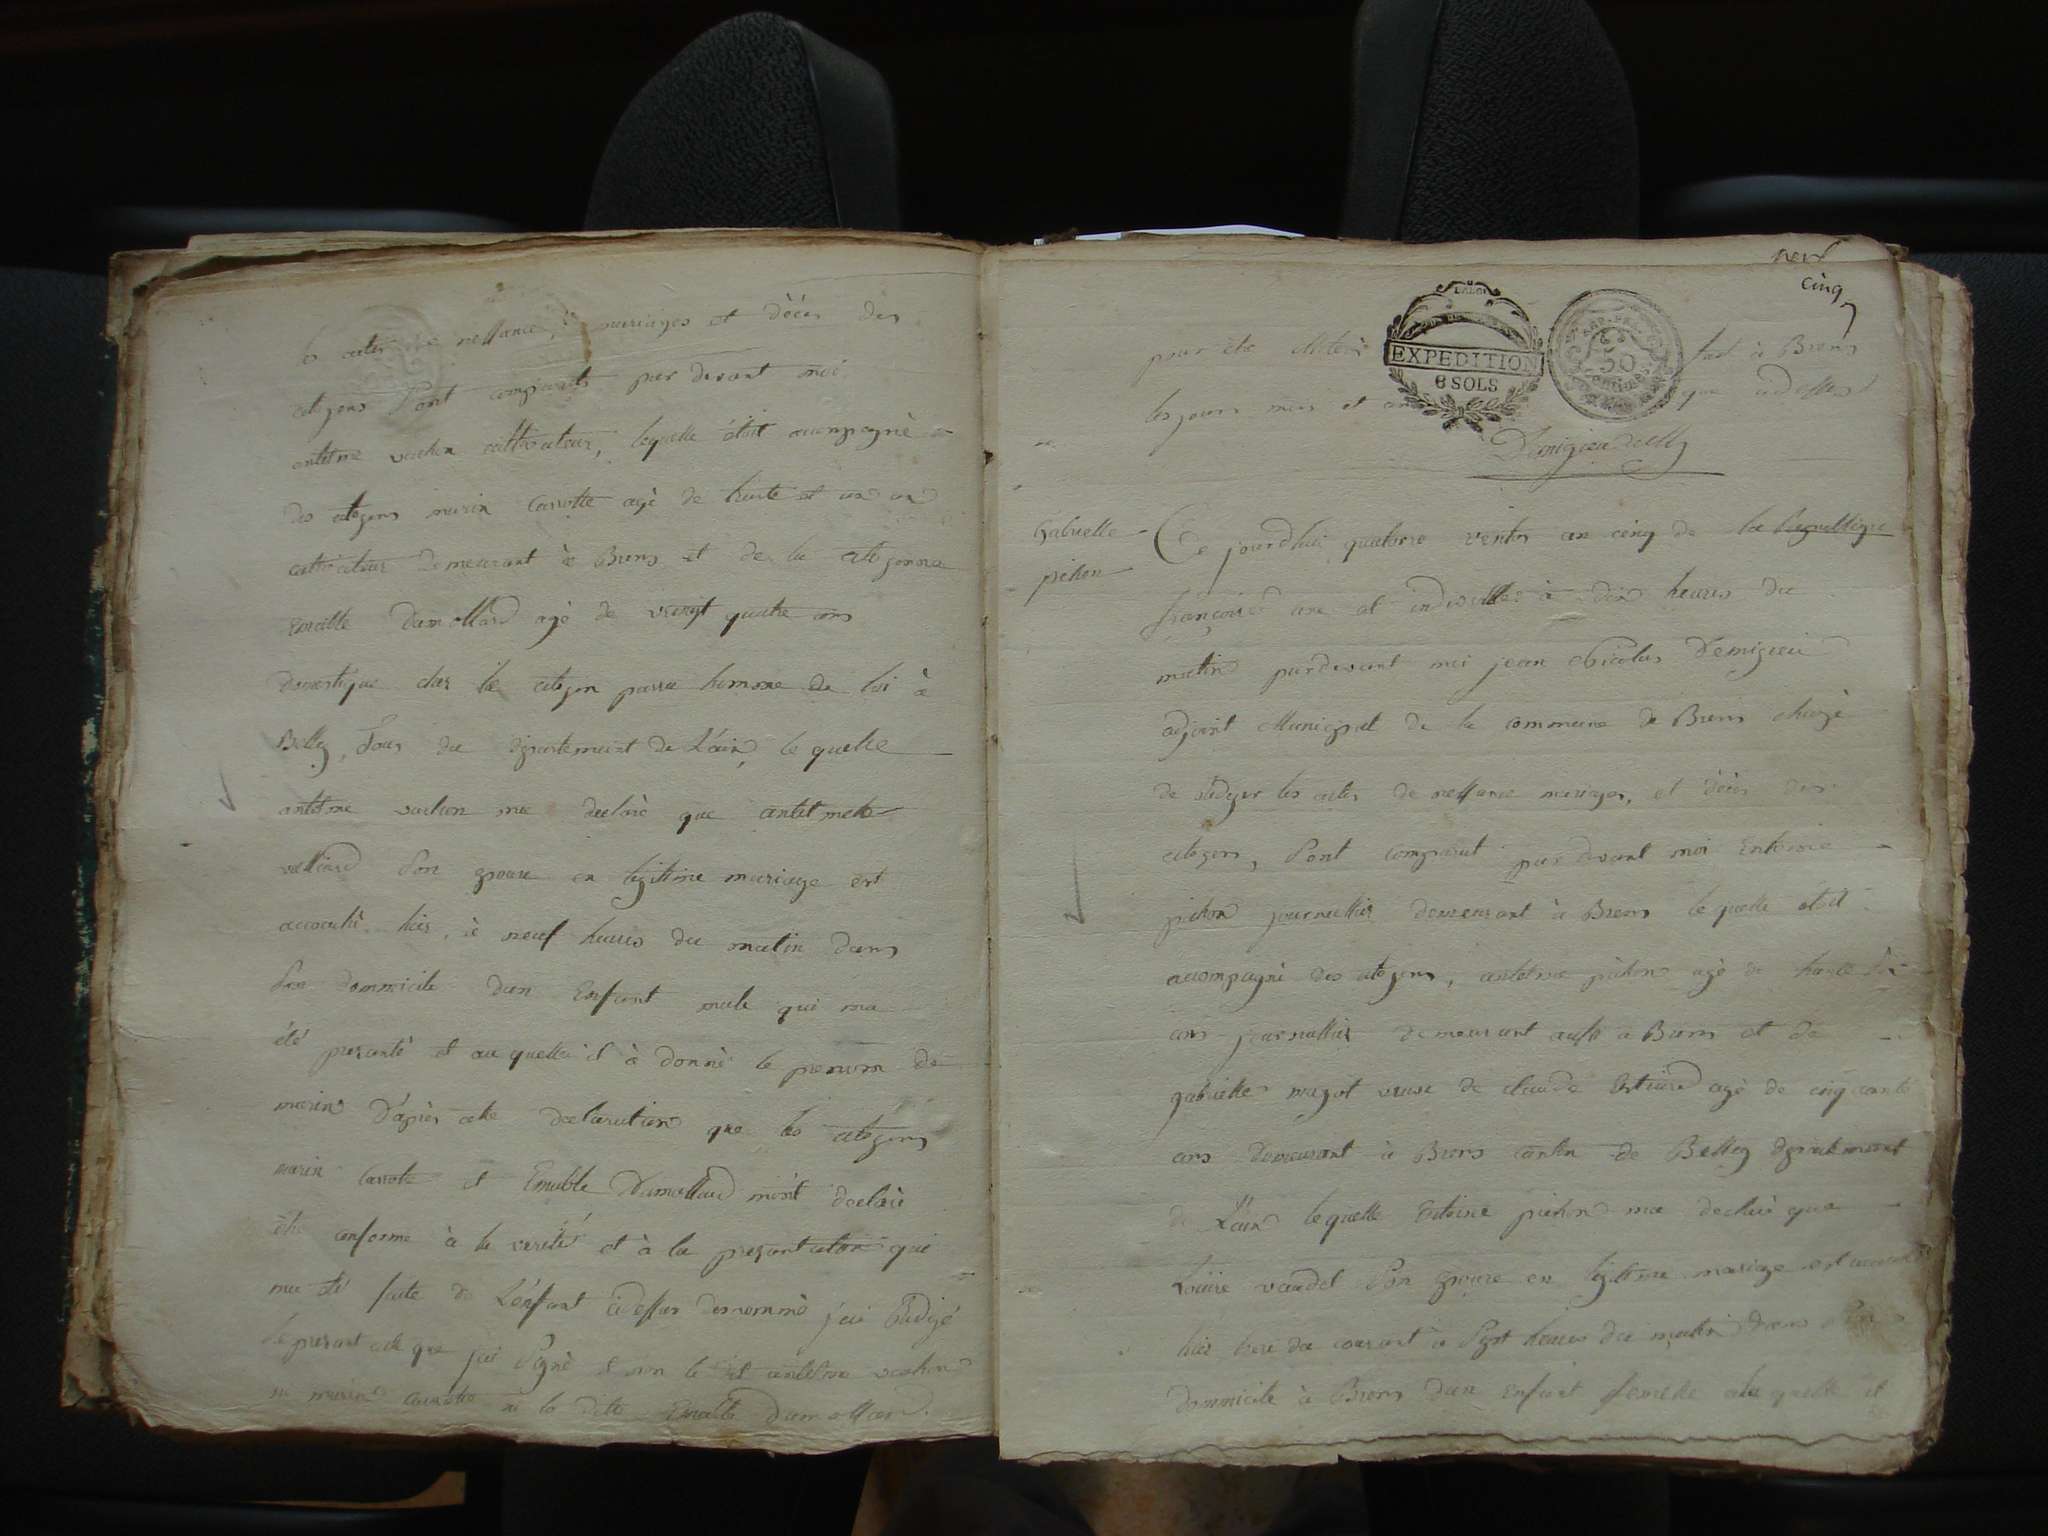 les actes de nessance, de mariages et décès des
citoyens sont comparuts par devant moi
antelme vachon cultivateur, lequelle étoit accompagnè
des citoyens marin Carrotte agè de trente et un an
cultivateur demeurant à Brens et de la citoyenne
Emable Dumollard agè de vaingt quatre ans
domestique ches le citoyen parra homme de loi à
Belley, tous du departement de L'ain, le quelle
antelme vachon ma declarè que antelmette
valliard son epouse en legitime mariage est
accouchè hier, à neuf heures du matin dans
son dommicile dun Enfant male qui ma
été presentè et au quelle il à donnè le prenom de
marin D'apres cette declaration que les citoyens
marin Carrotte et Emable Dumollard m'ont declarè
être conforme à la verité et à la presantation qui
ma été faite de L'énfant cidessus denommè j'ai Redigé
le presant acte que j'ai signè et non le dit antelme vachon
ni marin Carrotte ni la ditte Emable Dumollard.
neuf
cinq
pour être clitèrè fait à Brens
les jours mois et an que cidessus
EXPEDITION
6 SOLS
50
Demigieu adj
Gabrielle
pichon
Ce jourdhui quatorze ventos an cinq de la Republique
françoise une et indivisible à dix heures du
matin pardevant moi jean Nicolas Demigieu
adjoint Municipal de la commune de Brens chargè
de rédiger les actes de nessance mariages, et décès des
citoyens, sont comparut par devant moi Entoine
pichon journallier demeurant à Brens le quelle étoit
accompagnè des citoyens, antelme pichon agè de trante six
ans journallier demeurant aussi a Brens et de
gabrielle mugot veuve de claude Estiard agè de cinquante
ans demeurant à Brens canton de Belley departement
de L'ain lequelle Entoine pichon ma declarè que
Louise vaudel son epouse en legitime mariage est accouchè
hier treze du courant à sept heures du matin dans son
dommicile à Brens dun Enfant femelle ala quelle il